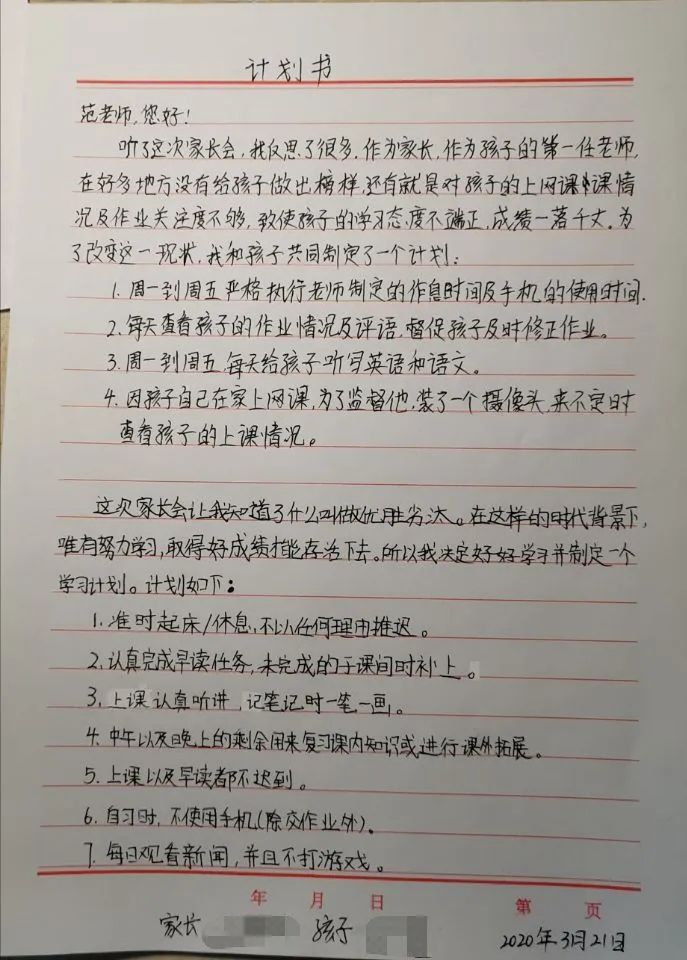 计划书
范老师,您好!
听了这次家长会,我反思了很多.作为家长,作为孩子的第一任老师,
在好多地方没有给孩子做出榜样.还有就是对孩子的上网课课情
况及作业关注度不够,致使孩子的学习态度不端正,成绩一落千丈。为
了改变这一现状,我和孩子共同制定了一个计划:
1.周一到周五严格执行老师制定的作息时间及手机的使用时间.
2.每天查看孩子的作业情况及评语,督促孩子及时修正作业。
3.周一到周五,每天给孩子听写英语和语文。
4.因孩子自己在家上网课,为了监督他,装了一个摄像头,来不定时
查看孩子的上课情况。
这次家长会让我知道了什么叫做优胜劣汰。在这样的时代背景下,
唯有努力学习,取得好成绩才能存活下去。所以我决定好好学习并制定一个
学习计划。计划如下:
1.准时起床/休息,不以任何理由推迟。
2.认真完成早读任务,未完成的于课间时补上。
3.上课认真听讲,记笔记时一笔一画。
4.中午以及晚上的剩余用来复习课内知识或进行课外拓展。
5.上课以及早读都不迟到。
6.自习时,不使用手机(除交作业外)。
7.每日观看新闻,并且不打游戏。
年 月 日 第 页
家长 孩子 2020年3月21日